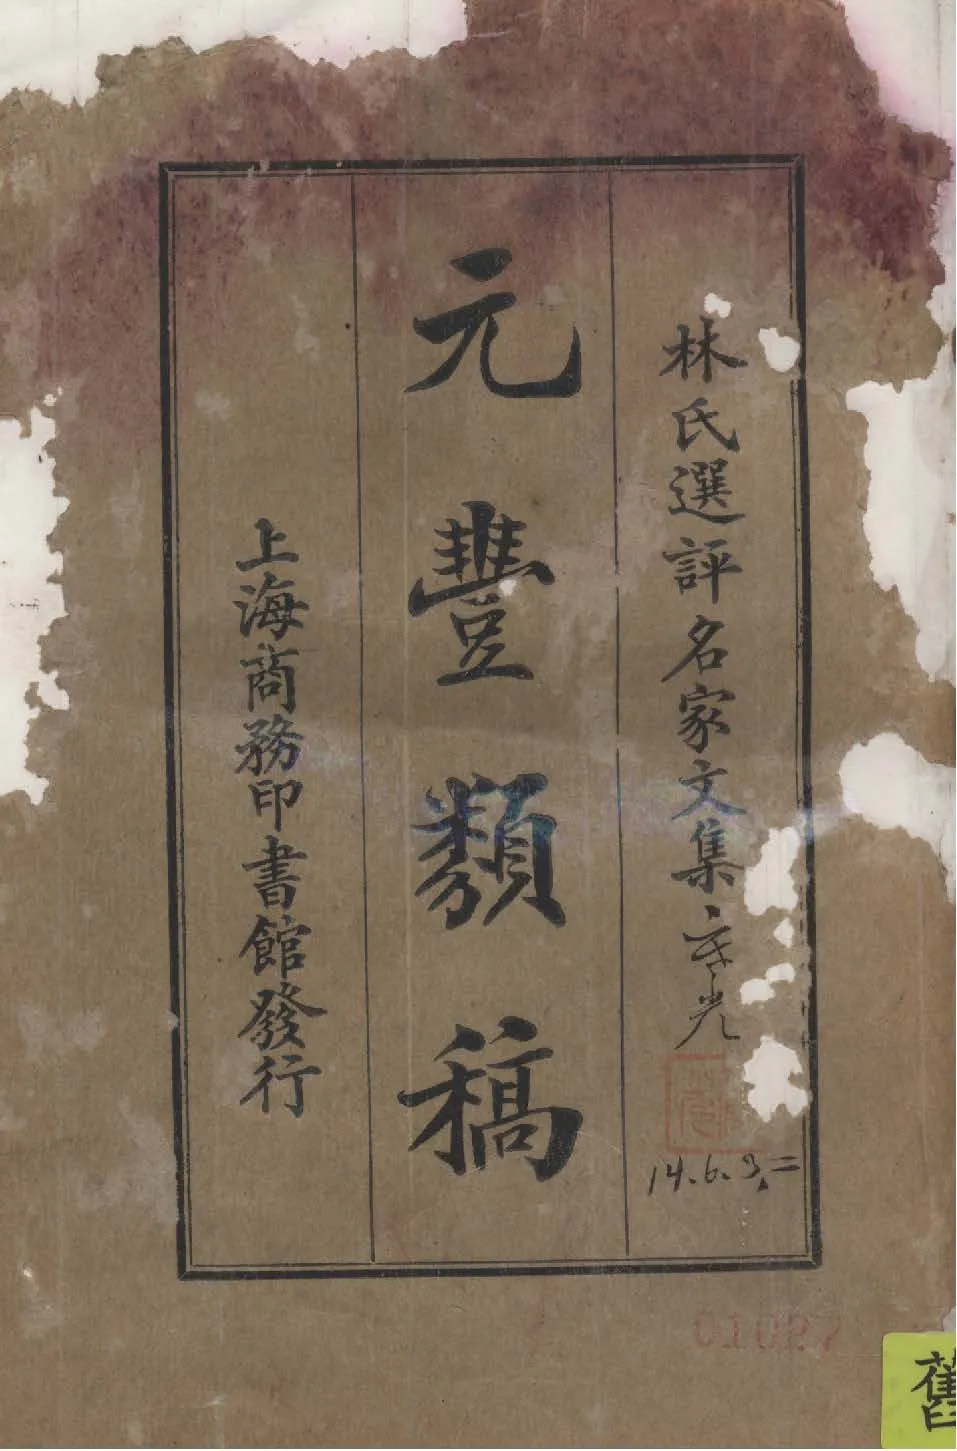 林氏選評名家文集
元豐類稿
上海商務印書館發行
14.6.3.二
01027
舊